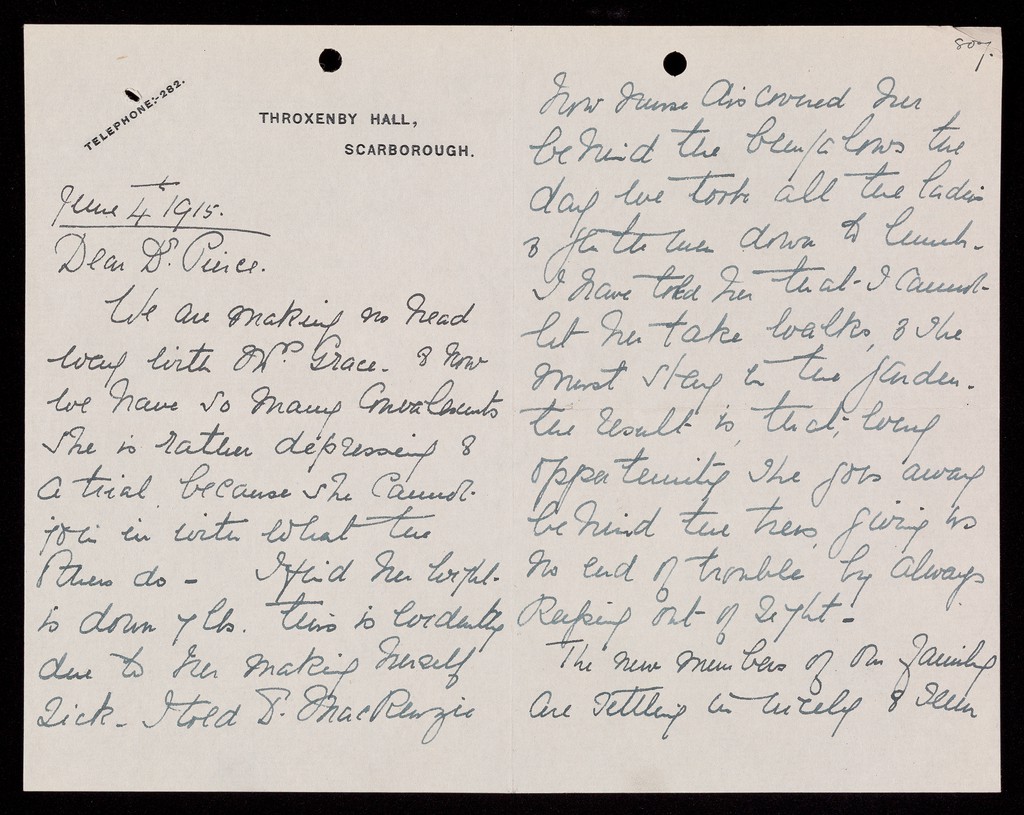 TELEPHONE:-282.
THROXENBY HALL,
SCARBOROUGH.
June 4th 1915.
Dear Dr. Pierce.
We are making no head
way with Mrs Grace. & now
we have so many Convalescents
she is rather depressing &
a trial because she Cannot
join in with what the
others do - I find her weight
is down 7 lbs. this is evidently
due to her making herself
Sick - I told Dr. MacKenzie
807.
how nurse discovered her
behind the bungalows the
day we took all the ladies
& gentlemen down to lunch.
I have told her that I Cannot
let her take walks, & she
must stay in the garden.
the result is, that, every
oppertunity she goes away
behind the trees giving us
no end of trouble by always
keeping out of sight -
The new members of our family
are settling in nicely & seem